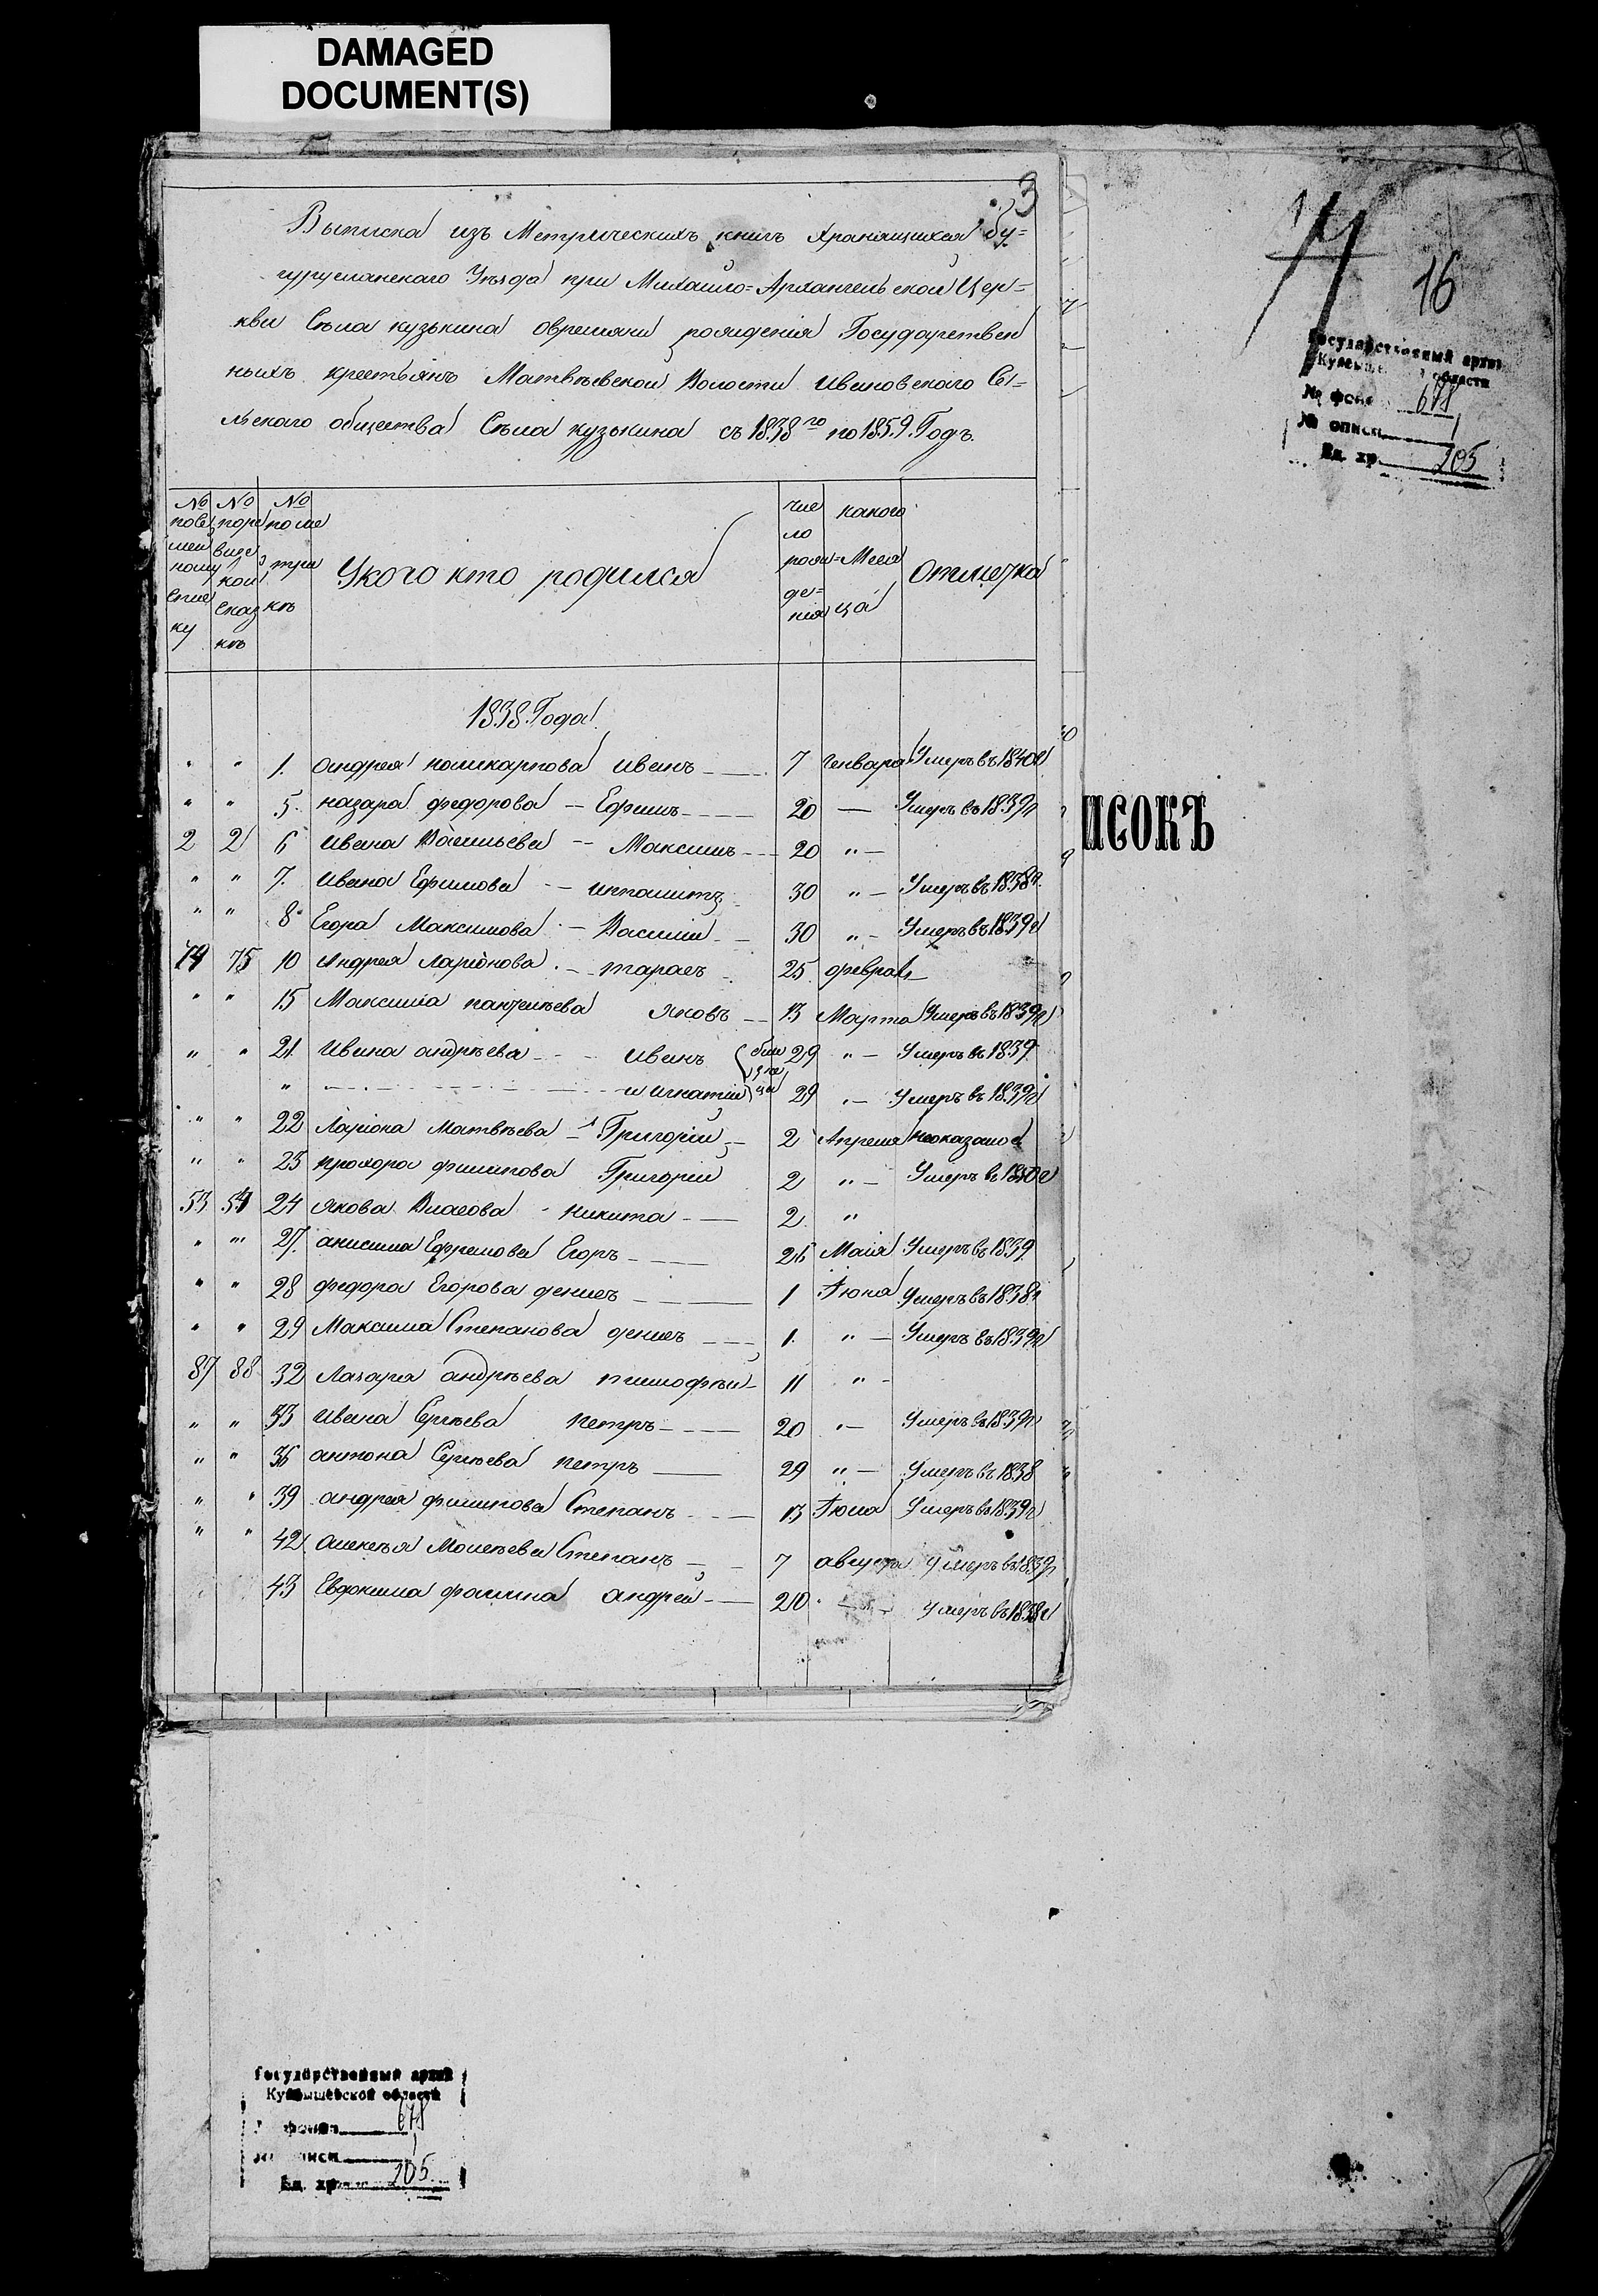 DAMAGED
DOCUMENT(S)
3
Выписка изъ Метрическихъ книгъ хранящихся бу=
гурусланскаго Уѣзда при Михайло=Архангельской Цер=
кви Сѣла кузькина овремяни рождения Государствен
ныхъ крестьянъ Матвѣевской Волости Ивановскаго Сѣ=
льскаго общества Сѣла кузькина съ 1838го по 1859. Годъ.
№ № №
Укого кто родился
число рожде=ния
какого Меся ца
отметка
1838. Года
" " 1. андрея поликарпова иванъ 7 Генваря Умеръ въ 1840
" " 5. назара федорова Ефимъ 20 — Умеръ въ 1839
2 2 6 ивана Васильева Максимъ 20 "
" " 7. ивана Ефимова ипполитъ 30 " Умеръ въ 1838
" " 8 Егора Максимова Василий 30 " Умеръ въ 1839
74 75 10 Андрея Ларионова тарасъ 25 февраля
" " 15 Максима пантелѣева яковъ 13 Марта Умеръ въ 1839
" " 21 Ивана андрѣева иванъ близнецы 29 " Умеръ въ 1839
" и игнатий 29 " Умеръ въ 1839
" " 22 Лариона Матвѣева Григорий 2 Апреля
" " 23 прохора филипова Григорий 2 " Умеръ въ
53 54 24 якова Власова никита 2 "
" " 27. анисима Ефремова Егоръ 26 Майя Умеръ въ 1839
" " 28 федора Егорова денисъ 1 Июня Умеръ въ 1838
" " 29 Максима Степанова денисъ 1. " Умеръ въ 1839
87 88 32 Лазаря андрѣева тимофѣй 11 "
" " 33 ивана Сергѣева петръ 20 " Умеръ въ 1839
" " 36 антона Сергѣева петръ 29 " Умеръ въ 1838
" " 39 андрея филипова Степанъ 13 Июля Умеръ въ 1839
" " 42 алексѣя Моисѣева Степанъ 7 августа Умеръ въ 1839
43 Евдокима фомина андрей 20 " Умеръ въ 1838
16
Государственный архив
Куйбышевской области
№ фонд 678
№ описи 1
Ед. хр. 205
ИСОКЪ
Государственный архив
Куйбышевской области
фонда 678
описи 1
Ед. хр. 205